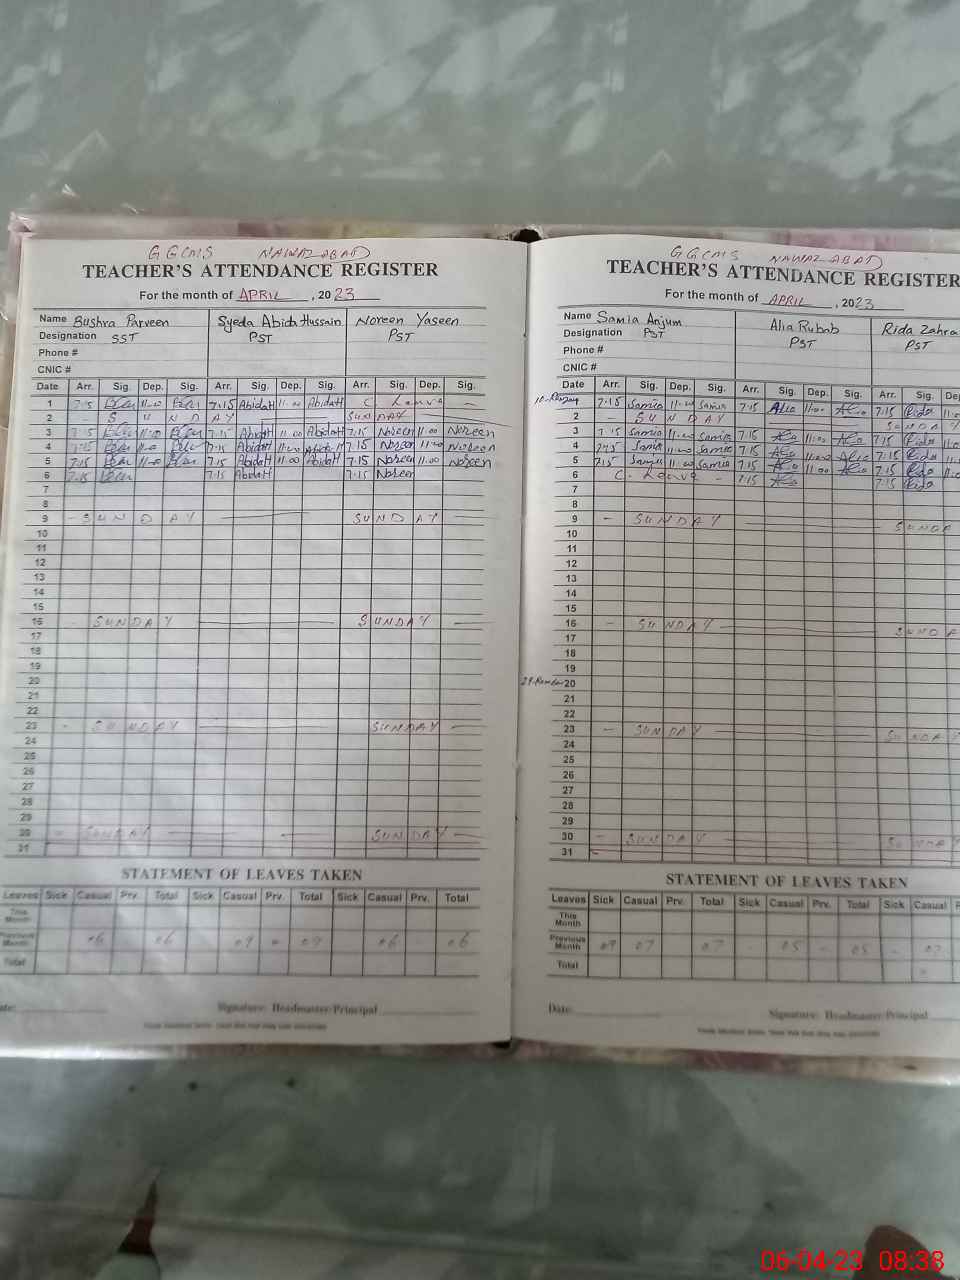 GGCMS NAWAZABAD
TEACHER'S ATTENDANCE REGISTER
For the month of APRIL , 2023
Name Bushra Parveen Syeda Abida Hussain Noreen Yaseen
Designation SST PST PST
Phone #
CNIC #
Date Arr. Sig. Dep. Sig. Arr. Sig. Dep. Sig. Arr. Sig. Dep. Sig.
1 7:15 11:00 7:15 AbidaH 11:00 AbidaH C Leave -
2 SUNDAY SUNDAY
3 7:15 11:00 7:15 AbidaH 11:00 AbidaH 7:15 Noreen 11:00 Noreen
4 7:15 11:00 7:15 AbidaH 11:00 AbidaH 7:15 Noreen 11:00 Noreen
5 7:15 11:00 7:15 AbidaH 11:00 AbidaH 7:15 Noreen 11:00 Noreen
6 7:15 7:15 AbidaH 7:15 Noreen
7
8
9 - SUNDAY SUNDAY
10
11
12
13
14
15
16 - SUNDAY SUNDAY
17
18
19
20
21
22
23 - SUNDAY SUNDAY
24
25
26
27
28
29
30 - SUNDAY SUNDAY
31
STATEMENT OF LEAVES TAKEN
Leaves Sick Casual Prv. Total Sick Casual Prv. Total Sick Casual Prv. Total
This Month
Previous Month 06 06 09 - 09 06 - 06
Total
Date: Signature: Headmaster/Principal
GGCMS NAWAZABAD
TEACHER'S ATTENDANCE REGISTER
For the month of APRIL , 2023
Name Samia Anjum Alia Rubab Rida Zahra
Designation PST PST PST
Phone #
CNIC #
Date Arr. Sig. Dep. Sig. Arr. Sig. Dep. Sig. Arr. Sig.
1 7:15 Samia 11:00 Samia 7:15 Alia 11:00 Alia 7:15 Rida
2 - SUNDAY SUNDAY
3 7:15 Samia 11:00 Samia 7:15 Alia 11:00 Alia 7:15 Rida
4 7:15 Samia 11:00 Samia 7:15 Alia 11:00 Alia 7:15 Rida
5 7:15 Samia 11:00 Samia 7:15 Alia 11:00 Alia 7:15 Rida
6 C. Leave - 7:15 Alia 7:15 Rida
7
8
9 - SUNDAY SUNDA
10
11
12
13
14
15
16 - SUNDAY SUNDA
17
18
19
20
21
22
23 - SUNDAY SUNDAY
24
25
26
27
28
29
30 - SUNDAY SUNDAY
31 -
STATEMENT OF LEAVES TAKEN
Leaves Sick Casual Prv. Total Sick Casual Prv. Total Sick Casual
This Month
Previous Month 07 07 05 - 05 - 07
Total
Date: Signature: Headmaster/Principal
06-04-23 08:38